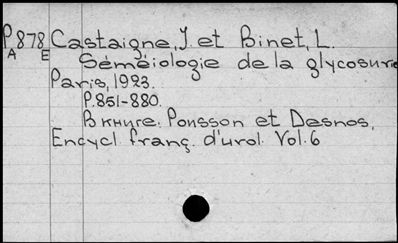 P.878 Castaigne, J. et Binet, L.
A E Séméiologie de la glycosurie
Paris, 1923.
P.851-880.
В книге: Pousson et Desnos,
Encycl. franç. d'urol. Vol. 6